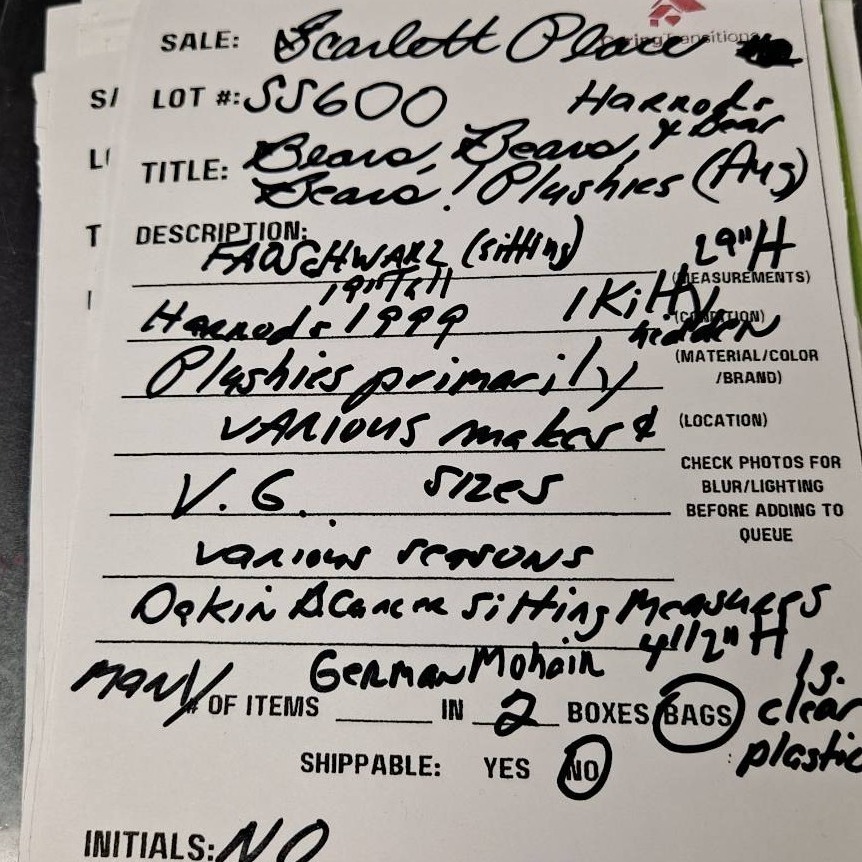 CaringTransitions
SALE: Scarlett Place
S/ LOT #: SS600 Harrods
& Bear
L TITLE: Bears, Bears,
Bears! Plushies (Aug)
T DESCRIPTION:
FAO SCHWARZ (sitting) 29"H
(MEASUREMENTS)
19" Tall
Harrods 1999 1 Kitty
(CONDITION)
hidden
Plushies primarily
(MATERIAL/COLOR
/BRAND)
VARIOUS makes &
(LOCATION)
V.G. sizes
CHECK PHOTOS FOR
BLUR/LIGHTING
BEFORE ADDING TO
QUEUE
various seasons
Dakin sitting Measures
4 1/2" H
German Mohair
MANY # OF ITEMS IN 2 BOXES BAGS
lg.
clear
plastic
SHIPPABLE: YES NO
INITIALS: NO